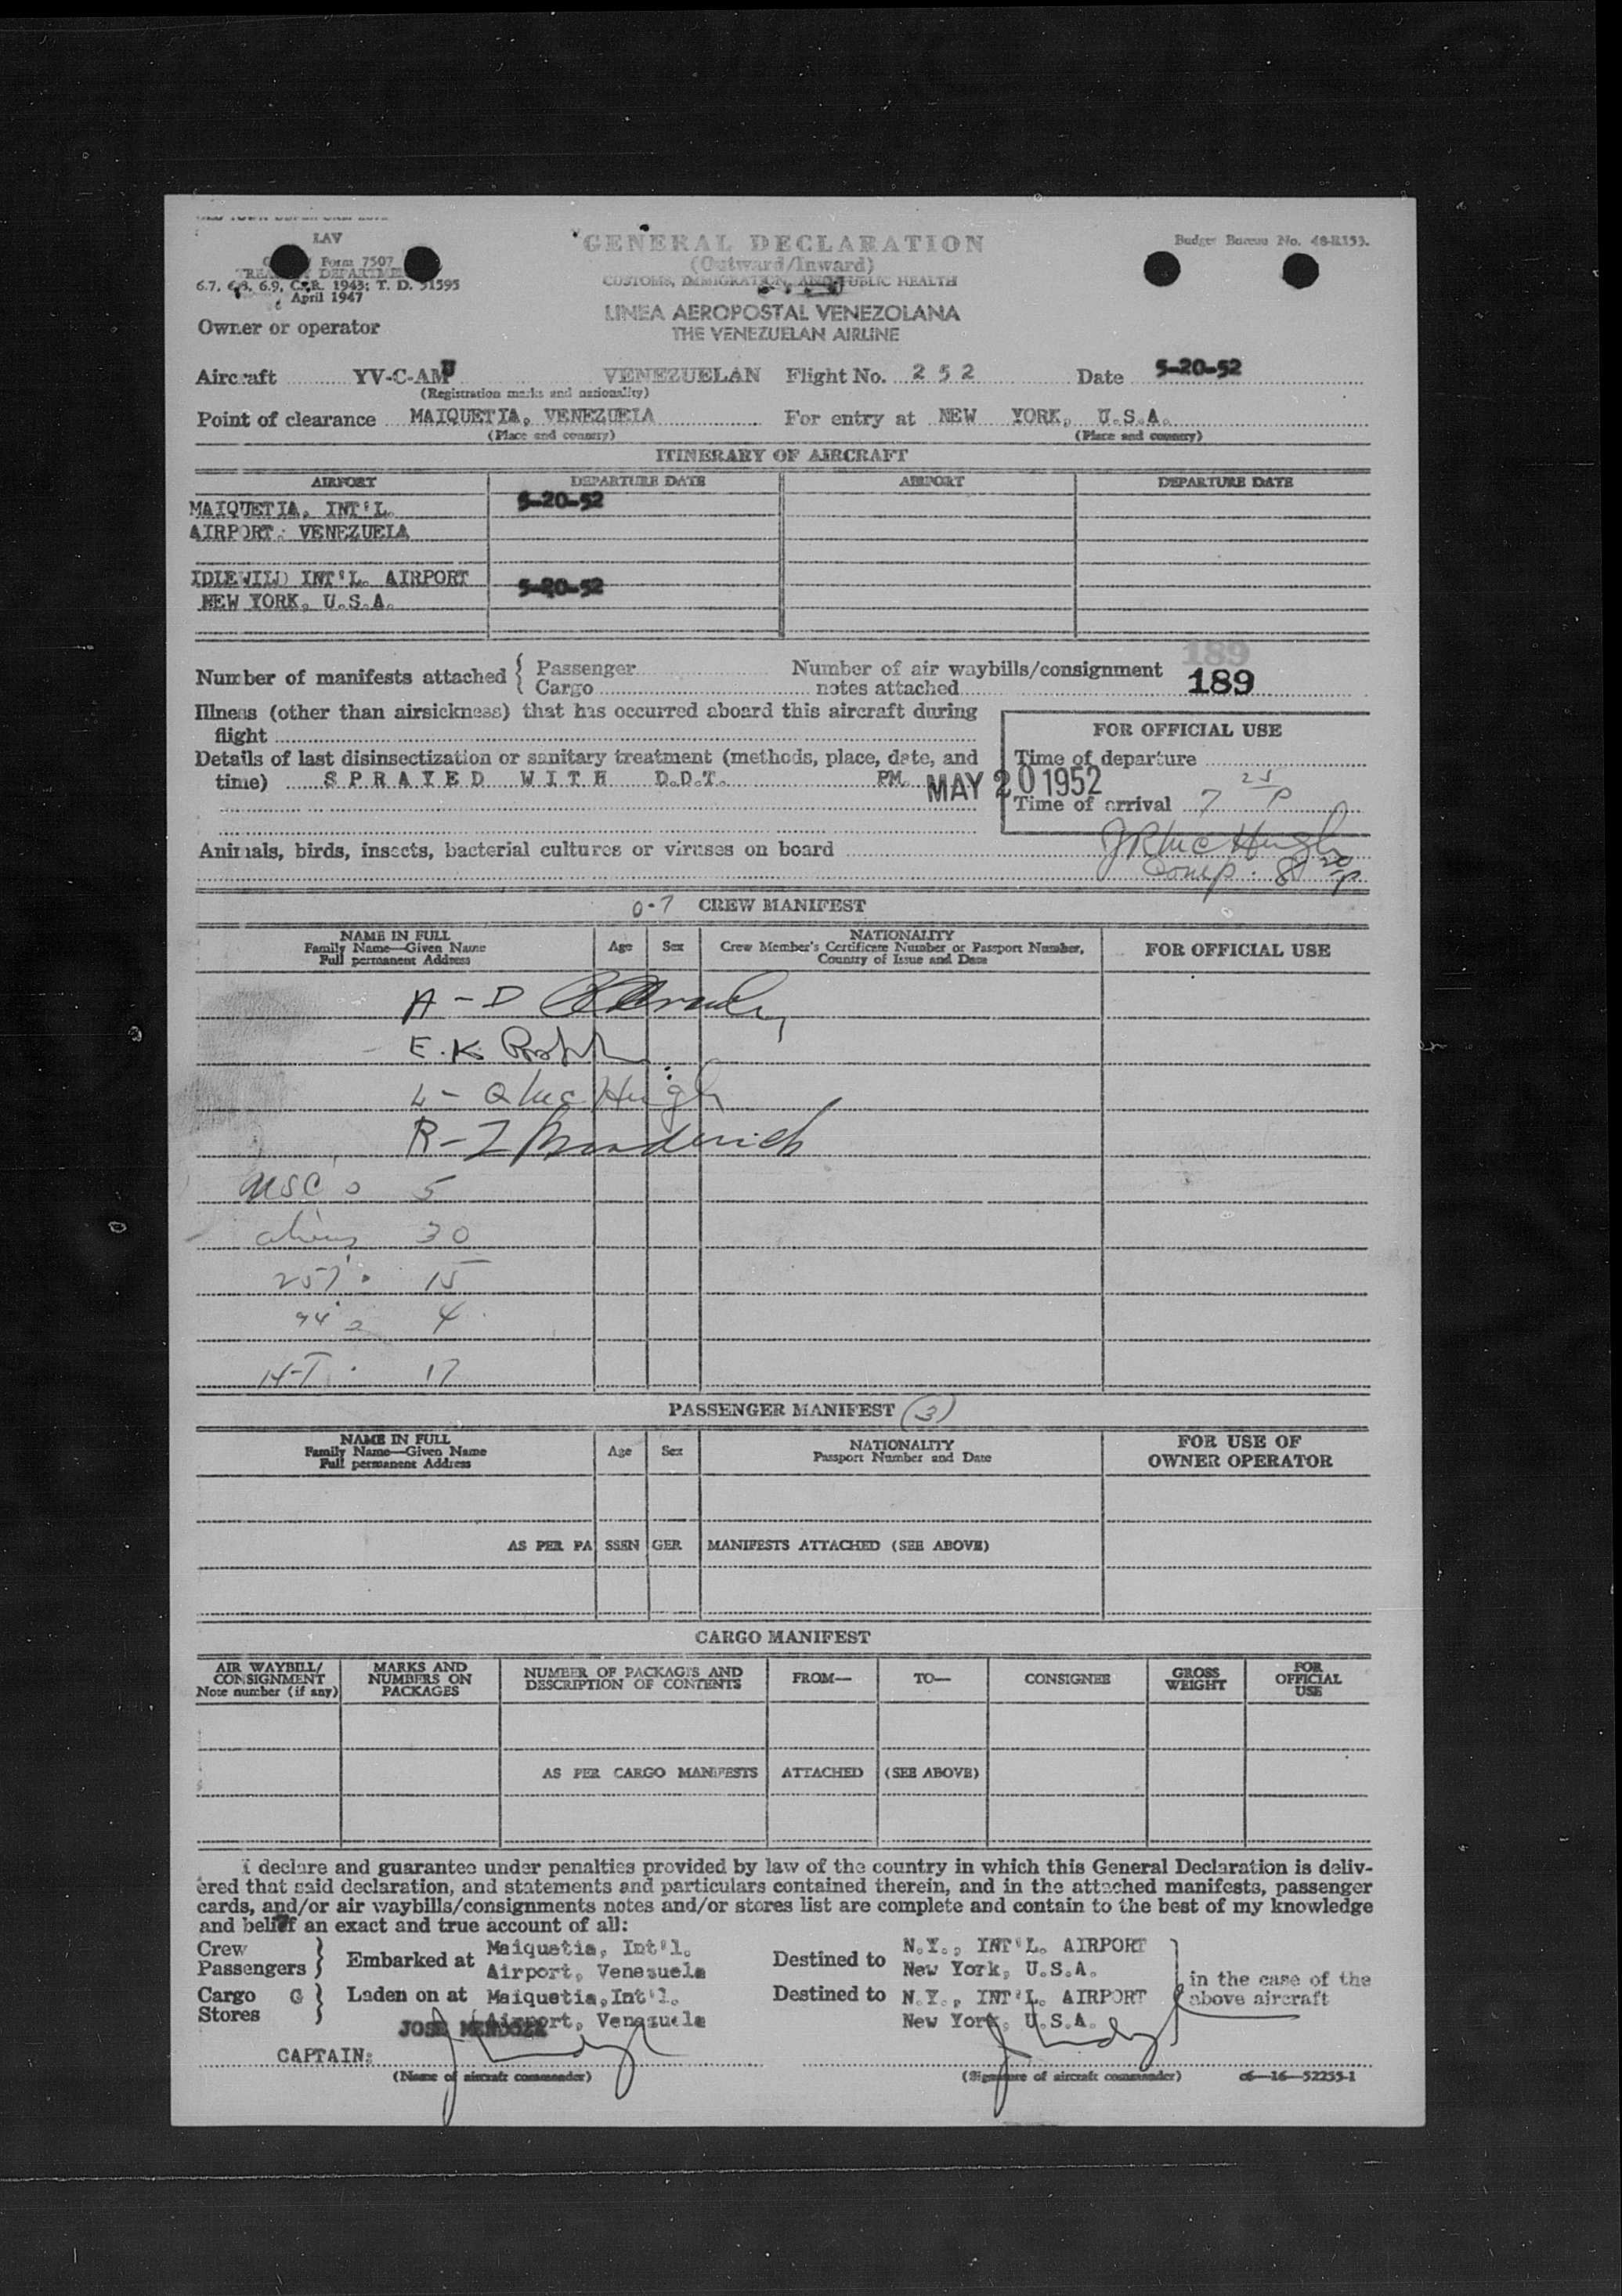 LAV
Form 7507
TREASURY DEPARTMENT
6.7, 6.8, 6.9, C.R. 1943; T. D. 51595
April 1947
GENERAL DECLARATION
(Outward/Inward)
CUSTOMS, IMMIGRATION, AND PUBLIC HEALTH
Budget Bureau No. 48-R153.
LINEA AEROPOSTAL VENEZOLANA
THE VENEZUELAN AIRLINE
Owner or operator
Aircraft YV-C-AMU VENEZUELAN Flight No. 252 Date 5-20-52
(Registration marks and nationality)
Point of clearance MAIQUETIA, VENEZUELA For entry at NEW YORK, U.S.A.
(Place and country) (Place and country)
ITINERARY OF AIRCRAFT
AIRPORT DEPARTURE DATE AIRPORT DEPARTURE DATE
MAIQUETIA, INT'L. 5-20-52
AIRPORT. VENEZUELA
IDLEWILD INT'L. AIRPORT 5-20-52
NEW YORK, U.S.A.
189
Number of manifests attached { Passenger Number of air waybills/consignment
Cargo notes attached 189
Illness (other than airsickness) that has occurred aboard this aircraft during
flight
FOR OFFICIAL USE
Details of last disinsectization or sanitary treatment (methods, place, date, and
time) SPRAYED WITH D.D.T. PM. MAY 20 1952
Time of departure
Time of arrival 7 25 P
J R McHugh
Comp. 8 20 P
Animals, birds, insects, bacterial cultures or viruses on board
0-7 CREW MANIFEST
NAME IN FULL
Family Name—Given Name
Full permanent Address
Age Sex
NATIONALITY
Crew Member's Certificate Number or Passport Number,
Country of Issue and Date
FOR OFFICIAL USE
A - D
E. K
L - Q McHugh
R - Z
USC 5
aliens 30
257 15
94 4
H-T 17
PASSENGER MANIFEST (3)
NAME IN FULL
Family Name—Given Name
Full permanent Address
Age Sex
NATIONALITY
Passport Number and Date
FOR USE OF
OWNER OPERATOR
AS PER PASSENGER MANIFESTS ATTACHED (SEE ABOVE)
CARGO MANIFEST
AIR WAYBILL/
CONSIGNMENT
Note number (if any)
MARKS AND
NUMBERS ON
PACKAGES
NUMBER OF PACKAGES AND
DESCRIPTION OF CONTENTS
FROM— TO— CONSIGNEE
GROSS
WEIGHT
FOR
OFFICIAL
USE
AS PER CARGO MANIFESTS ATTACHED (SEE ABOVE)
I declare and guarantee under penalties provided by law of the country in which this General Declaration is deliv-
ered that said declaration, and statements and particulars contained therein, and in the attached manifests, passenger
cards, and/or air waybills/consignments notes and/or stores list are complete and contain to the best of my knowledge
and belief an exact and true account of all:
Crew
Passengers } Embarked at Maiquetia, Int'l.
Airport, Venezuela
Destined to N.Y., INT'L. AIRPORT
New York, U.S.A.
Cargo G
Stores } Laden on at Maiquetia, Int'l.
Airport, Venezuela
Destined to N.Y., INT'L. AIRPORT
New York, U.S.A.
in the case of the
above aircraft
JOSE MENDOZA
CAPTAIN:
(Name of aircraft commander) (Signature of aircraft commander) c6—16—52255-1